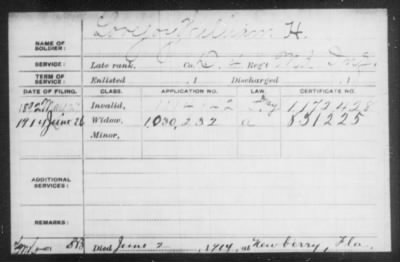 NAME OF SOLDIER: Lovejoy William H.
SERVICE: Late rank, Co. Regt. Md. Inf.
TERM OF SERVICE: Enlisted , 1 Discharged , 1
DATE OF FILING. CLASS. APPLICATION NO. LAW. CERTIFICATE NO.
Invalid, 1172428
1914 June 26 Widow, 1,030,232 831225
Minor,
ADDITIONAL SERVICES:
REMARKS:
Died June 2, 1914, at Newberry, Fla.